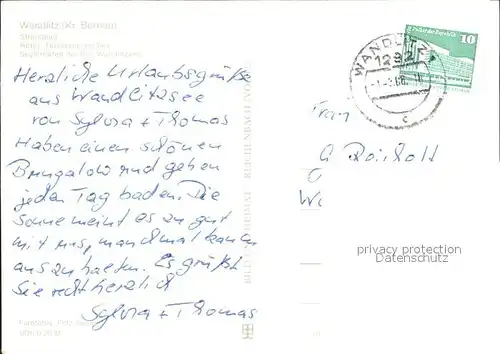 Wandlitz (Kr. Bernau)
Strandbad
Herzliche Urlaubsgrüße
aus Wandlitzsee
von Sylvia + Thomas
Haben einen schönen
Bungalow und gehen
jeden Tag baden. Die
Sonne meint es zu gut
mit uns, manchmal kaum
auszuhalten. Es grüßt
Sie recht herzlich
Sylvia + Thomas
WANDLITZ
1292
c
10
Frau
privacy protection
Datenschutz